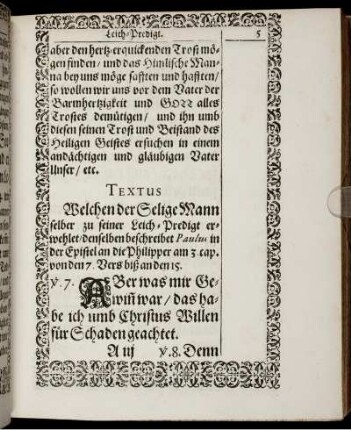 Leich-Predigt. 5
aber den hertz-erquickenden Trost mö-
gen finden/ und das Himlische Man-
na bey uns möge safften und hafften/
so wollen wir uns vor dem Vater der
Barmhertzigkeit und GOtt alles
Trostes demütigen/ und ihn umb
diesen seinen Trost und Beistand des
Heiligen Geistes ersuchen in einem
andächtigen und gläubigen Vater
Unser/ etc.
TEXTUS
Welchen der Selige Mann
selber zu seiner Leich-Predigt er-
wehlet/ denselben beschreibet Paulus in
der Epistel an die Philipper am 3 cap.
von den 7. Vers biß an den 15.
v. 7. ABer was mir Ge-
wiñ war/ das ha-
be ich umb Christus Willen
für Schaden geachtet.
A uj v. 8. Denn